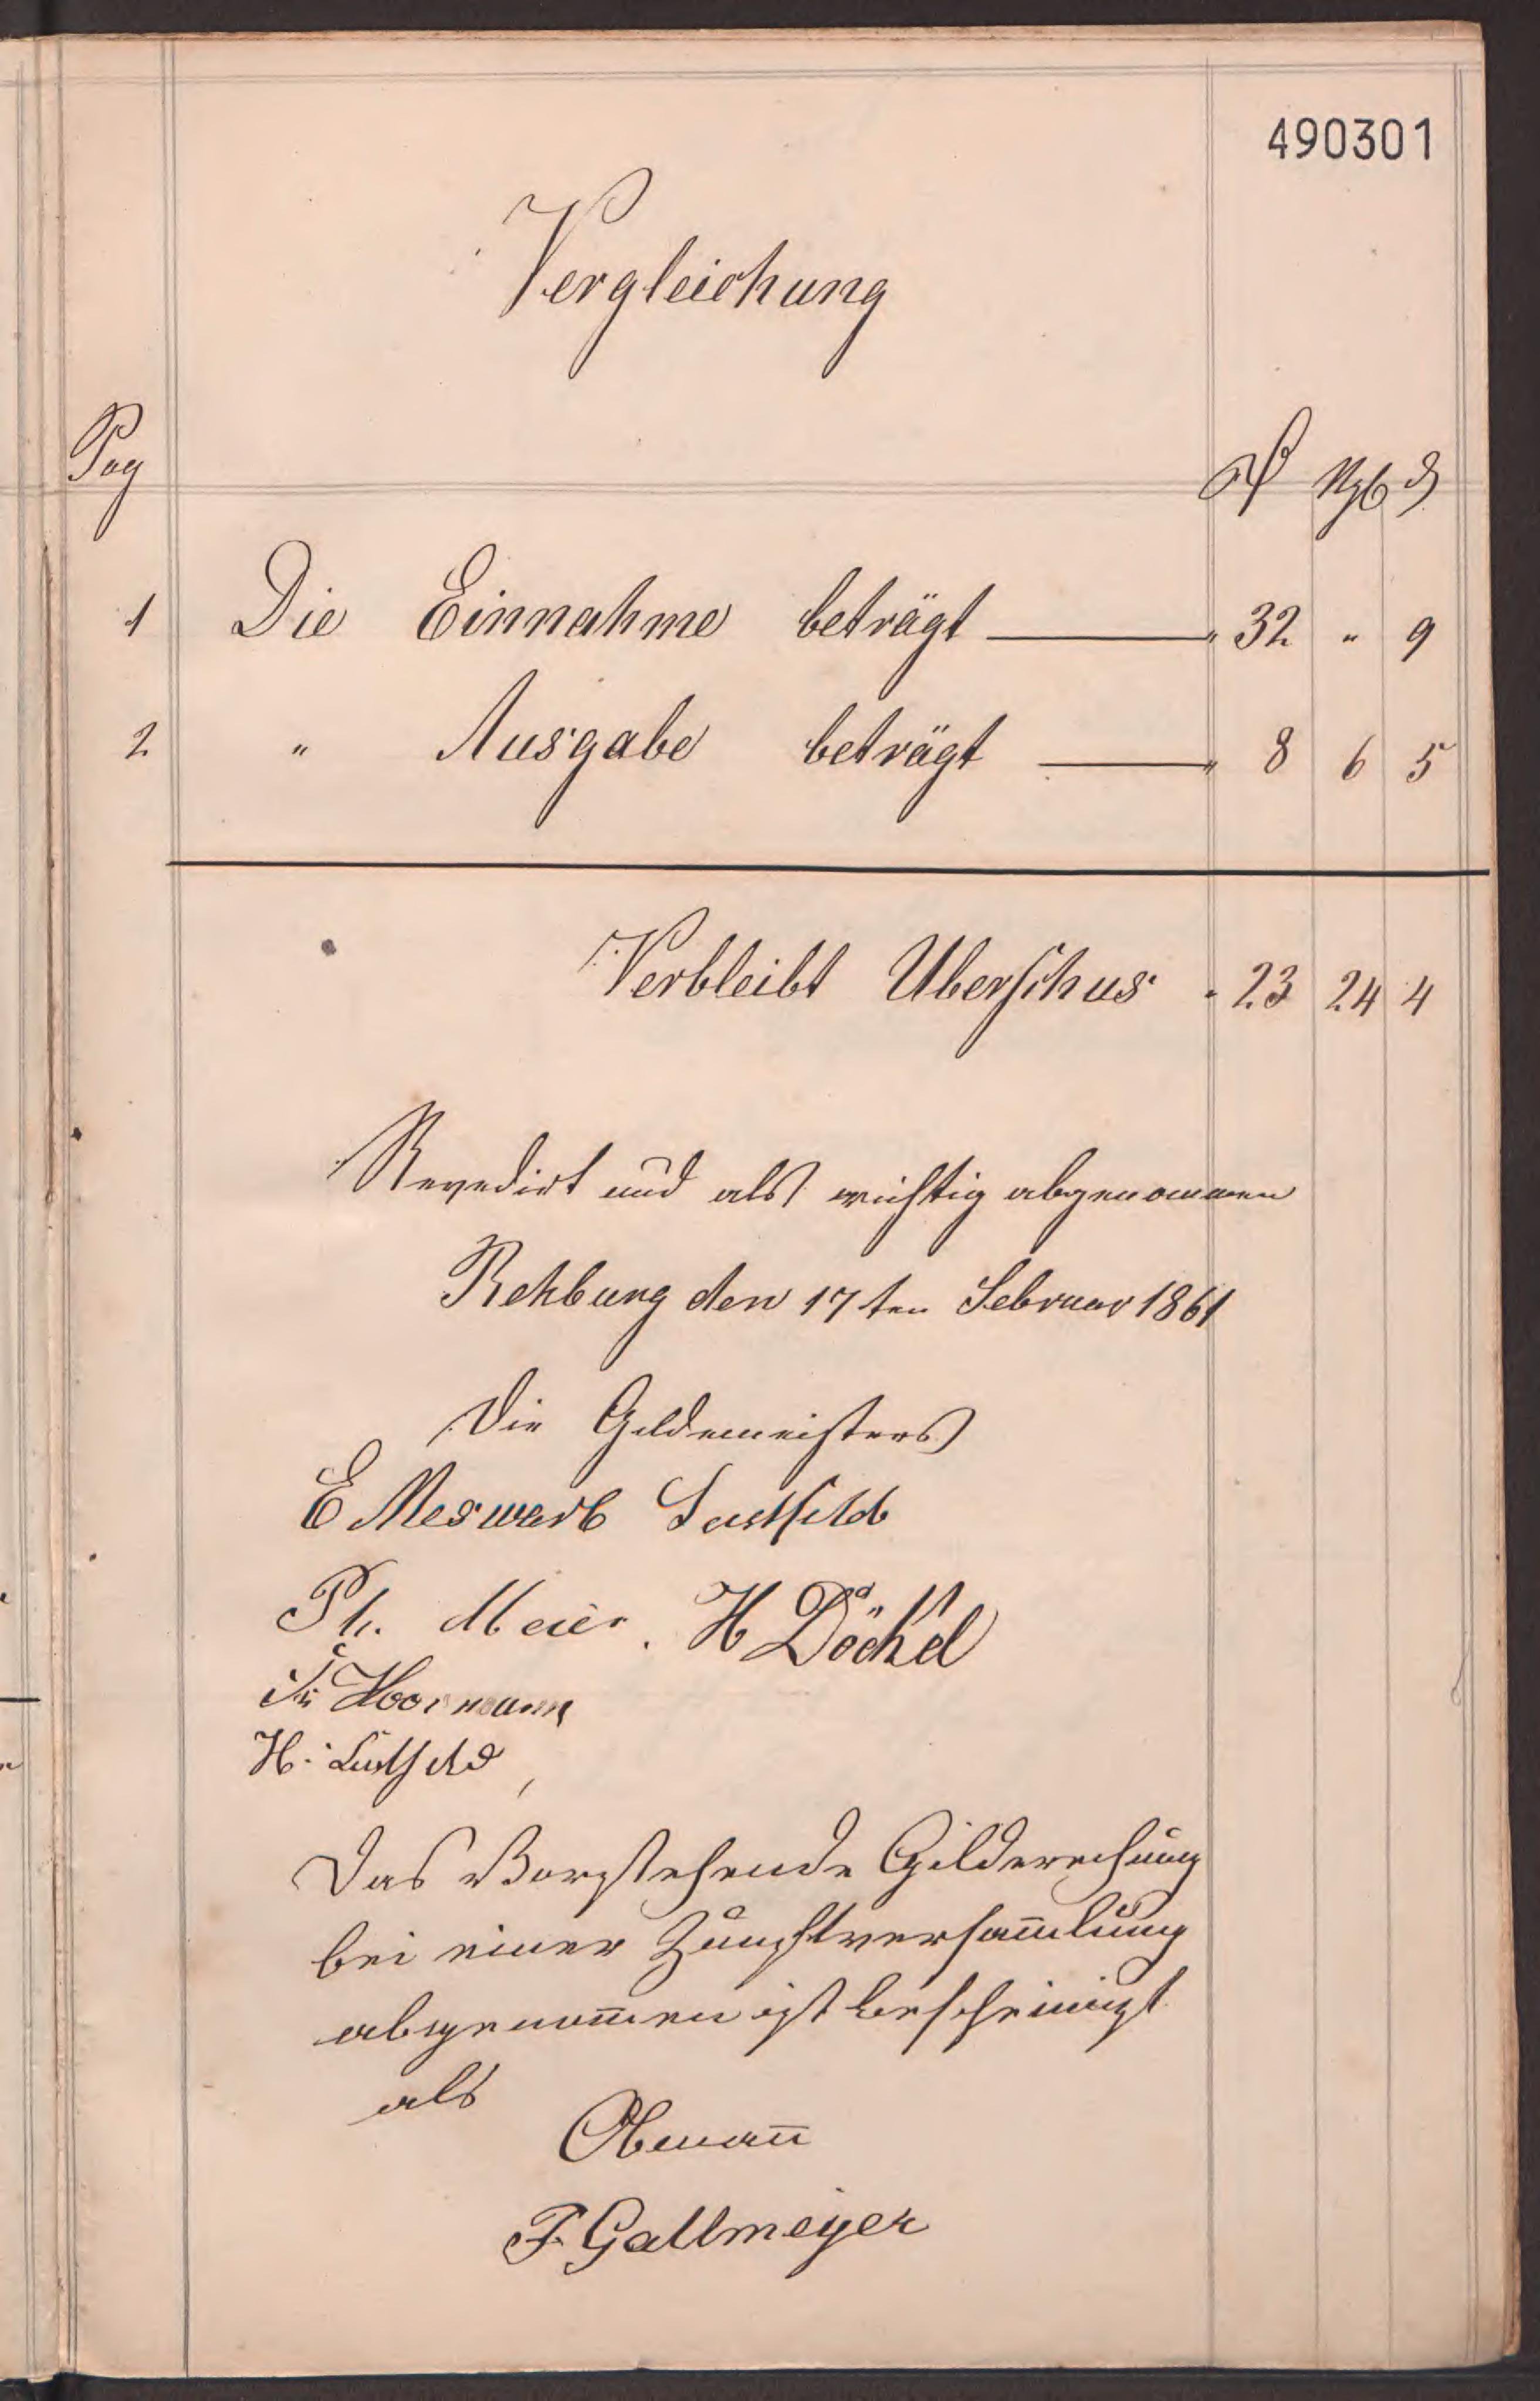 490301
Vergleichung
Pag
₰ Ngb ₰
1 Die Einnahme beträgt — „ 32 „ 9
2 „ Ausgabe beträgt — „ 8 6 5
Verbleibt Uberschus „ 23 24 4
Revedirt und als richtig abgenommen
Rehburg den 17ten Februar 1861
Die Gildemeisters
E Meswarb Lustfeld
Ph. Meier. H Döckel
Fr Hoormann
H. Lustfeld
Das Vorstehende Gilderechung
bei einer Zunftversam̅lung
abgenom̅en ist bescheinigt
als
Obman̅
F. Gallmeyer